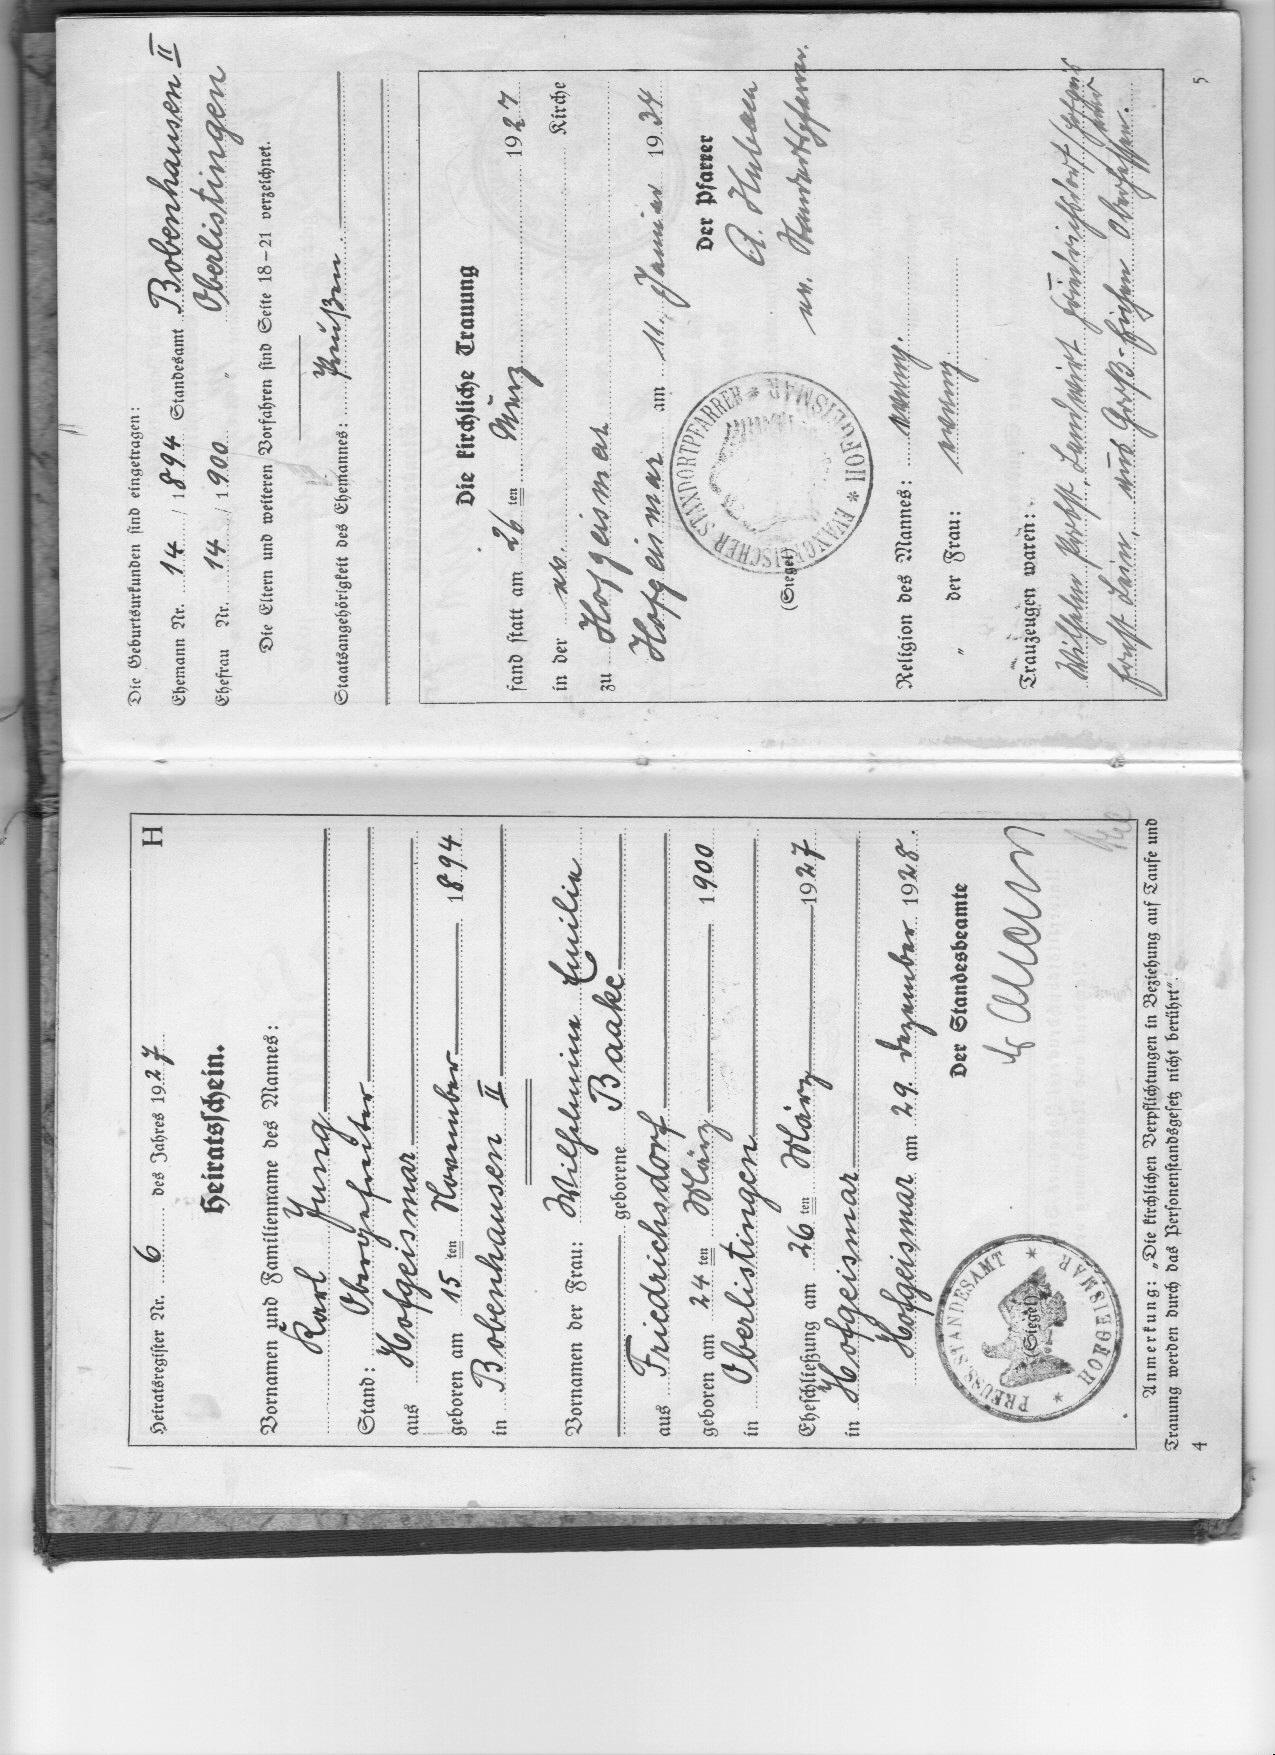 Heiratsregister Nr. 6 des Jahres 1927
H
Heiratsschein.
Vornamen und Familienname des Mannes:
Karl Jung
Stand: Obergefreiter
aus Hofgeismar
geboren am 15 ten November 1894
in Bobenhausen II
Vornamen der Frau: Wilhelmine Emilie
geborene Baake
aus Friedrichsdorf
geboren am 24 ten März 1900
in Oberlistingen
Eheschließung am 26 ten März 1927
in Hofgeismar
Hofgeismar am 29. Dezember 1928.
Der Standesbeamte
(Siegel)
PREUSS. STANDESAMT * HOFGEISMAR *
Anmerkung: „Die kirchlichen Verpflichtungen in Beziehung auf Taufe und
Trauung werden durch das Personenstandsgesetz nicht berührt“.
4
Die Geburtsurkunden sind eingetragen:
Ehemann Nr. 14 / 1894 Standesamt Bobenhausen II
Ehefrau Nr. 14 / 1900 „ Oberlistingen
Die Eltern und weiteren Vorfahren sind Seite 18–21 verzeichnet.
Staatsangehörigkeit des Ehemannes: Preußen
Die kirchliche Trauung
fand statt am 26 ten März 1927
in der ev. Kirche
zu Hofgeismar
Hofgeismar am 11. Januar 1934
Der Pfarrer
ev. Standortpfarrer.
(Siegel)
EVANGELISCHER STANDORTPFARRER * HOFGEISMAR *
Religion des Mannes: evang.
„ der Frau: evang
Trauzeugen waren:
Wilhelm Landwirt Friedrichsdorf
Ernst aus Groß-Eichen Oberhessen.
5